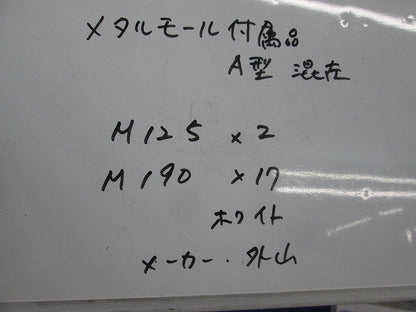 メタルモール付属品
A型 混在
M125 x 2
M190 x 17
ホワイト
メーカー・外山